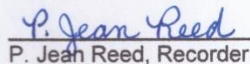 P. Jean Reed
P. Jean Reed, Recorder